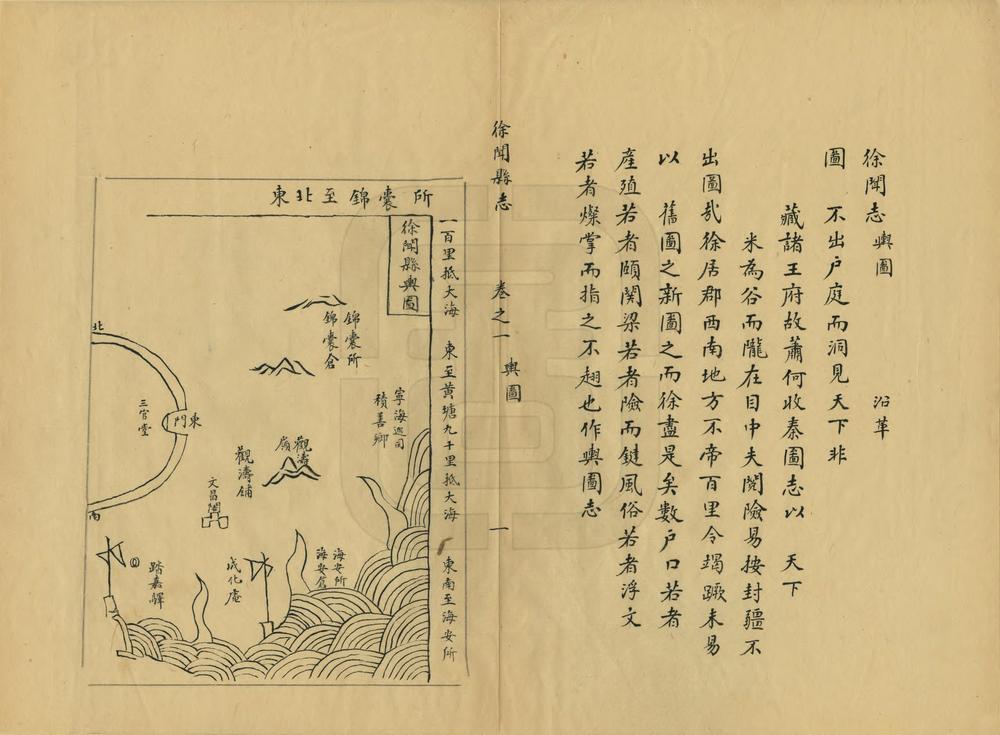 徐聞志 輿圖 沿革
圖 不出户庭而洞見天下非
藏諸王府故蕭何收秦圖志以 天下
米為谷而隴在目中夫閱險易按封疆不
出圖㢤徐居郡西南地方不帝百里令竭蹶未易
以 舊圖之新圖之而徐盡是矣數户口若者
產殖若者頤関梁若者險而鍵風俗若者浮文
若者燦掌而指之不翅也作輿圖志
徐聞縣志 卷之一 輿圖 一
東北至錦囊所
一百里抵大海 東至黃塘九十里抵大海 東南至海安所
徐聞縣輿圖
錦囊所
錦囊倉
寧海巡司
積善鄉
觀濤嶺
觀濤鋪
文昌閣
海安所
海安倉
戍化庵
踏嘉驛
北
東門
三官堂
南